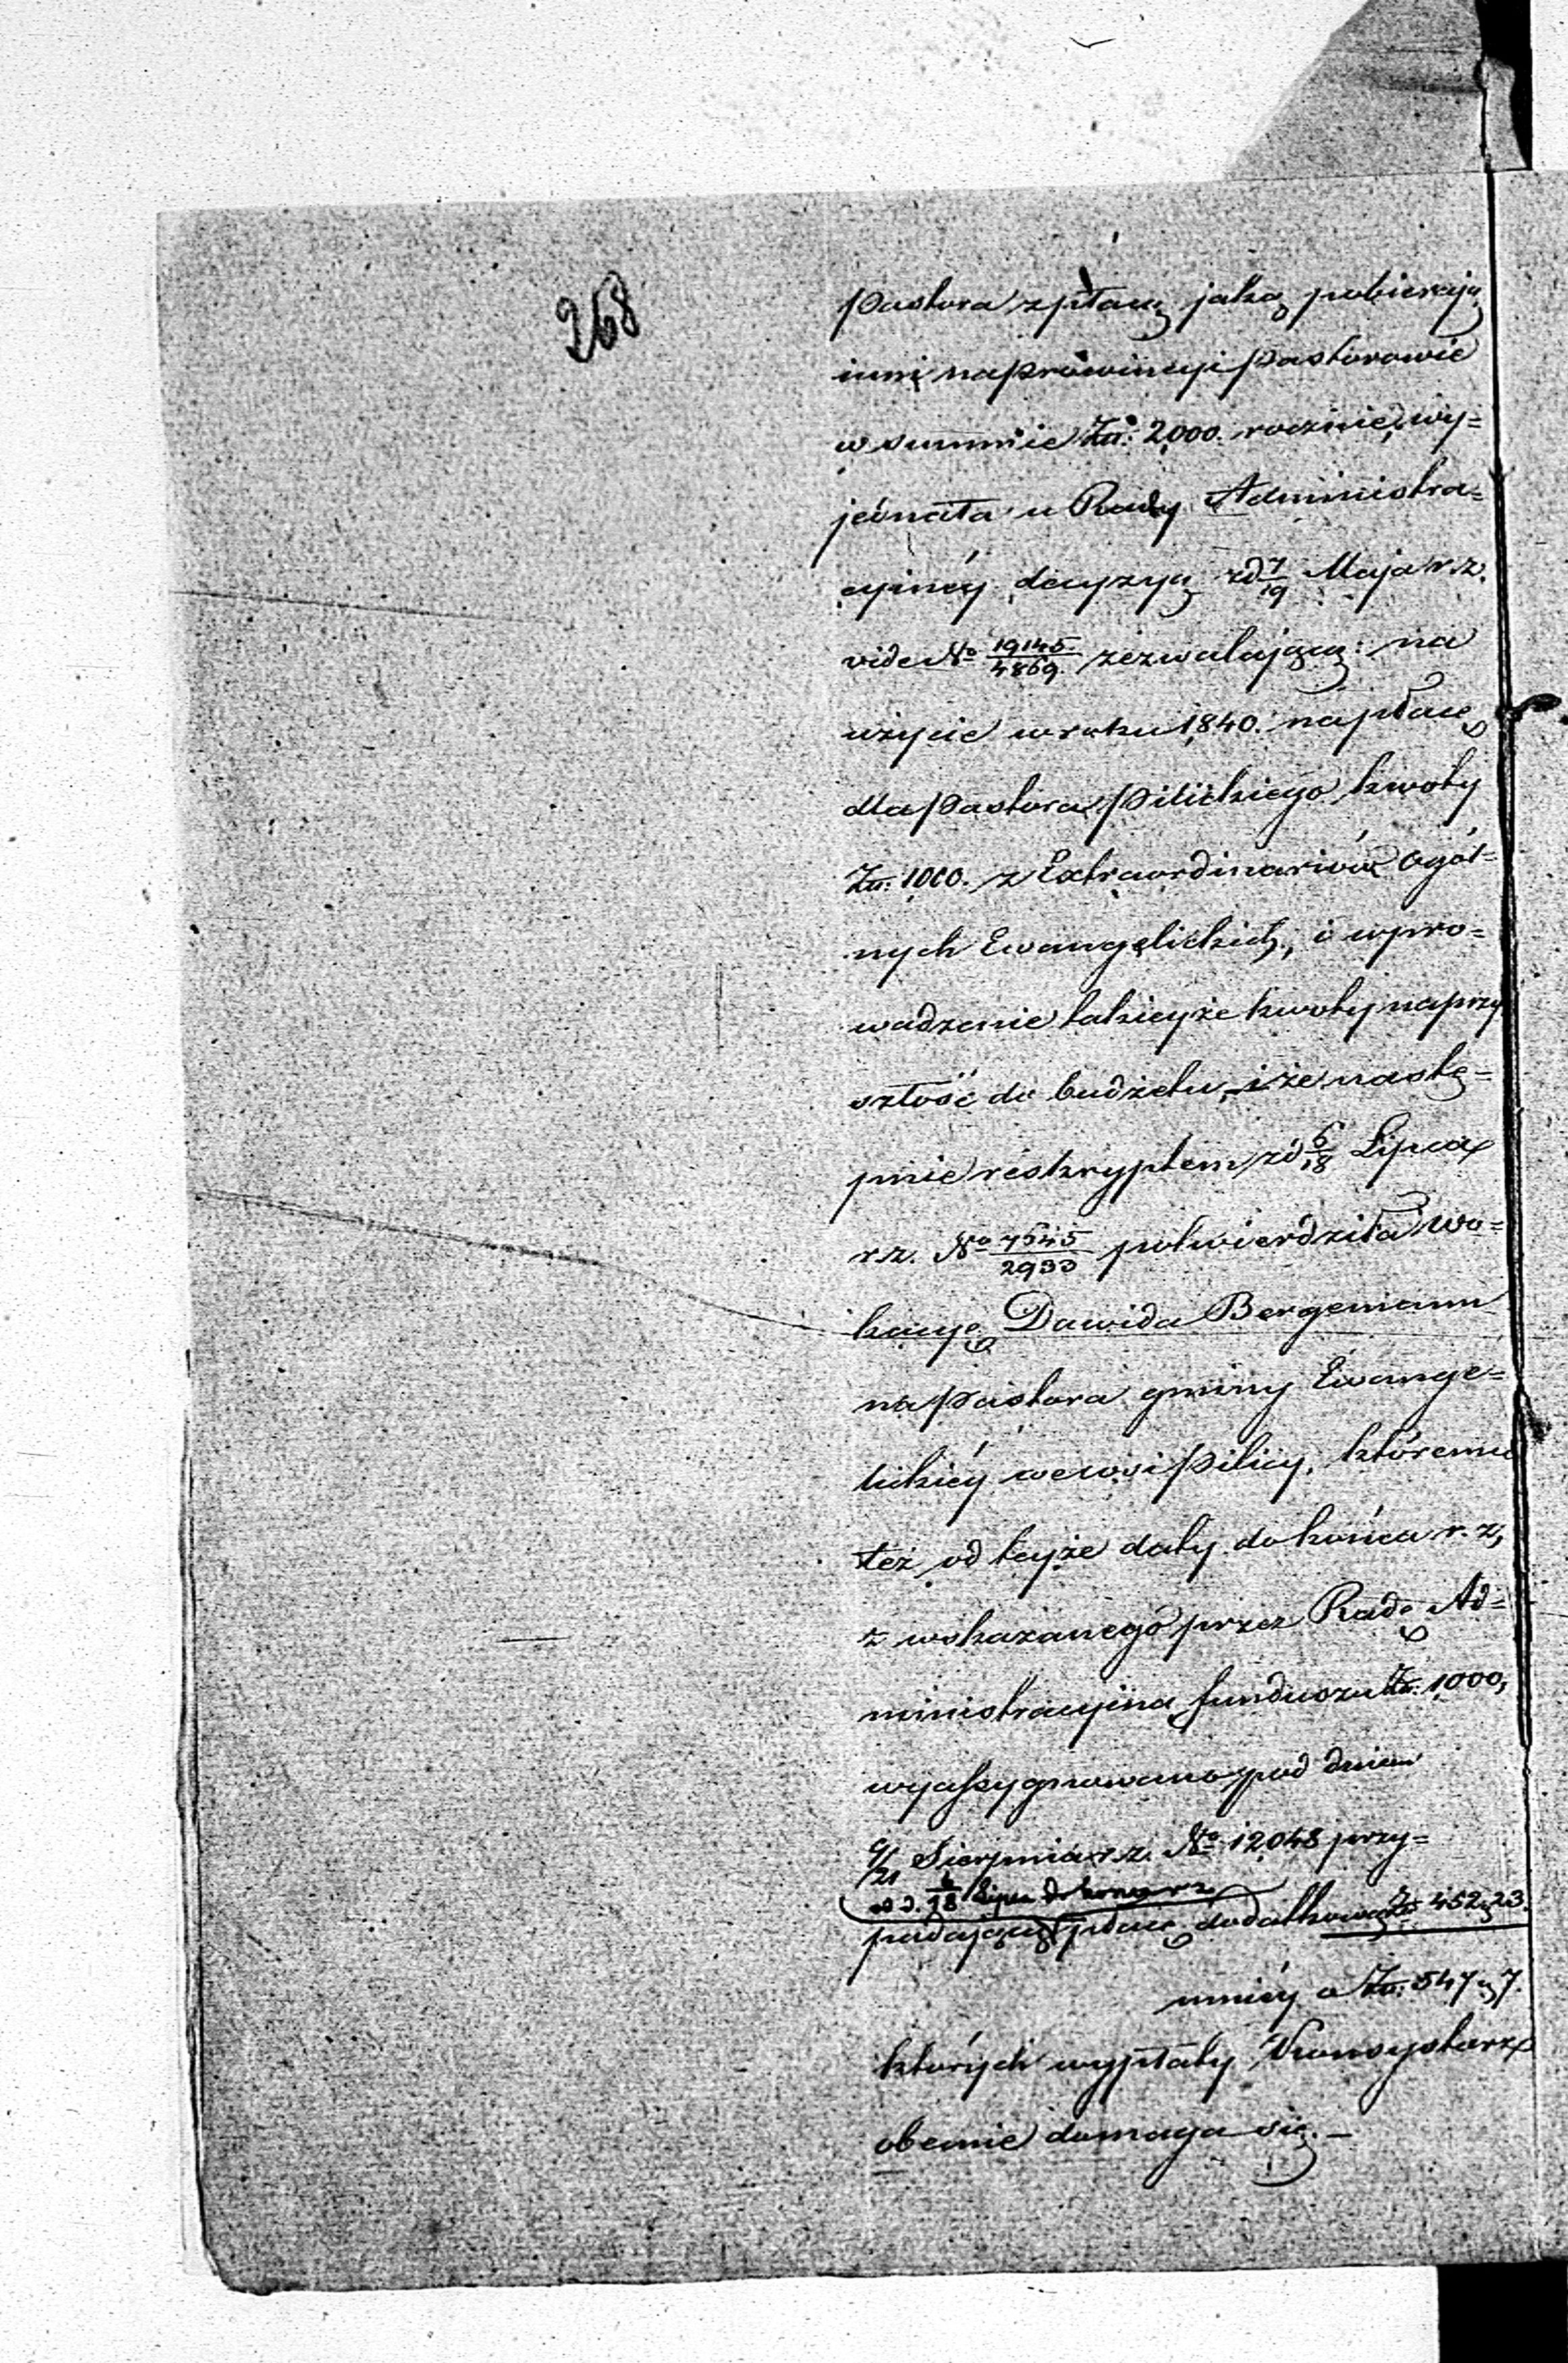 268
Pastora z płacą jaką pobierają
inni na prowincyi Pastorowie
w summie Złł: 2,000. rocznie, wy=
jednała u Rady Administra=
cyinéy decyzyą z d 7/19 Maja r. z.
vide No 19145/4869 zezwalającą: na
użycie w roku 1840. na płacę
dla Pastora Pilickiego kwoty
Złł: 1000. z Extraordinariów ogól=
nych Ewangelickich, i wpro=
wadzenie takieyże kwoty na przy
szłość do budżetu, i że nastę=
pnie reskryptem z d 6/18 Lipca
r. z. No 7645/2933 potwierdziła wo=
kacyę Dawida Bergemann
na Pastora gminy Ewange=
lickiéy we wsi Pilicy, któremu
też od teyże daty do końca r. z,
z wskazanego przez Radę Ad=
ministracyina funduszu Złł: 1000,
wyassygnowano pod dniem
9/21 Sierpnia r. z. No 12048 przy=
od d. 6/18 Lipca do końca r z
padającą płacę dodatkową Złł 452, 23.
mniéy o Złł: 547, 7.
których wypłaty Konsystorz
obecnie domaga się. —